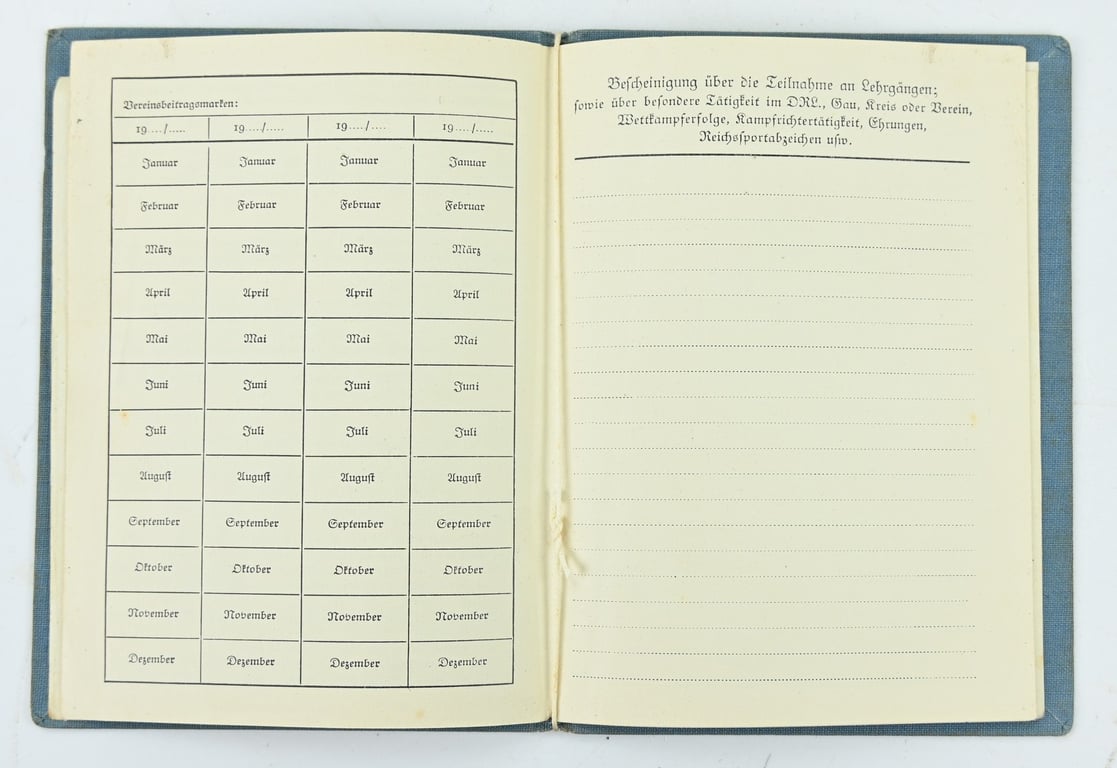 Vereinsbeitragsmarken:
19..../..... 19..../..... 19..../.... 19..../.....
Januar Januar Januar Januar
Februar Februar Februar Februar
März März März März
April April April April
Mai Mai Mai Mai
Juni Juni Juni Juni
Juli Juli Juli Juli
August August August August
September September September September
Oktober Oktober Oktober Oktober
November November November November
Dezember Dezember Dezember Dezember
Bescheinigung über die Teilnahme an Lehrgängen;
sowie über besondere Tätigkeit im DRL., Gau, Kreis oder Verein,
Wettkampferfolge, Kampfrichtertätigkeit, Ehrungen,
Reichssportabzeichen usw.